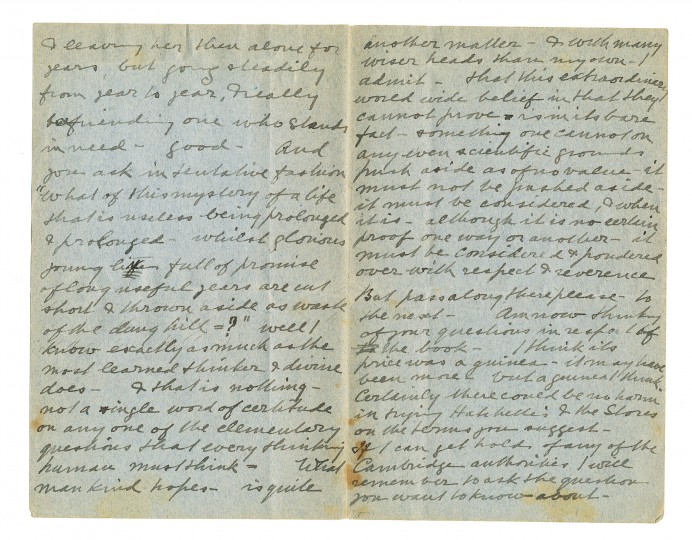 & leaving her then alone for
years but going steadily
from year to year, & really
befriending one who stands
in need - good - And
you ask in tentative fashion
"What of this mystery of a life
that is useless being prolonged
& prolonged - whilst glorious
young lives full of promise
of long useful years are cut
short & thrown aside as waste
of the dung hill = ?" well I
know exactly as much as the
most learned thinker & divine
does - & that is nothing -
not a single word of certitude
on any one of the elementary
questions that every thinking
human must think - What
mankind hopes - is quite
another matter - & with many
wiser heads than my own - I
admit - that this extraordinary
world wide belief in that they
cannot prove - is in its bare
fact - something one cannot on
any even scientific grounds
push aside as of no value - it
must not be pushed aside -
it must be considered, & when
it is - although it is no certain
proof one way or another - it
must be considered & pondered
over with respect & reverence
But pass along there please - to
the next - Am now thinking
of your questions in respect of
the book - I think its
price was a guinea - it may have
been more - but a guinea I think.
Certainly there could be no harm
in trying Hatchette's & the Stores
on the terms you suggest -
If I can get hold of any of the
Cambridge authorities I will
remember to ask the question
you want to know about -